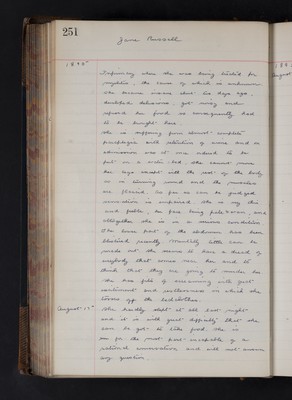 251
Jane Russell
1895
Infirmary where she was being treated for
myelitis, the cause of which is unknown
she became insane about ten days ago,
developed delusions, got noisy and
refused her food & consequently had
to be brought here
She is suffering from almost complete
paraplegia with retention of urine, and on
admission was at once ordered to be
put on a water bed, she cannot move
her legs except with the rest of the body
in a swaying and the muscles
are flaccid. As far as can be judged
sensation is impaired. She is very thin
and feeble, her face being pale & worn, and
altogether she is in a serious condition
The lower part of the abdomen has been
blistered recently. Mentally little can be
made out she seems to have a dread of
everybody that comes near her and to
think that they are going to murder her
She has fits of screaming with great
excitement and restlessness in which she
throws off the bedclothes.
August 12th
She hardly slept at all last night
and it is with great difficulty that she
can be got to take food. She is
for the most part incapable of a
rational conversation and will not answer
any question.